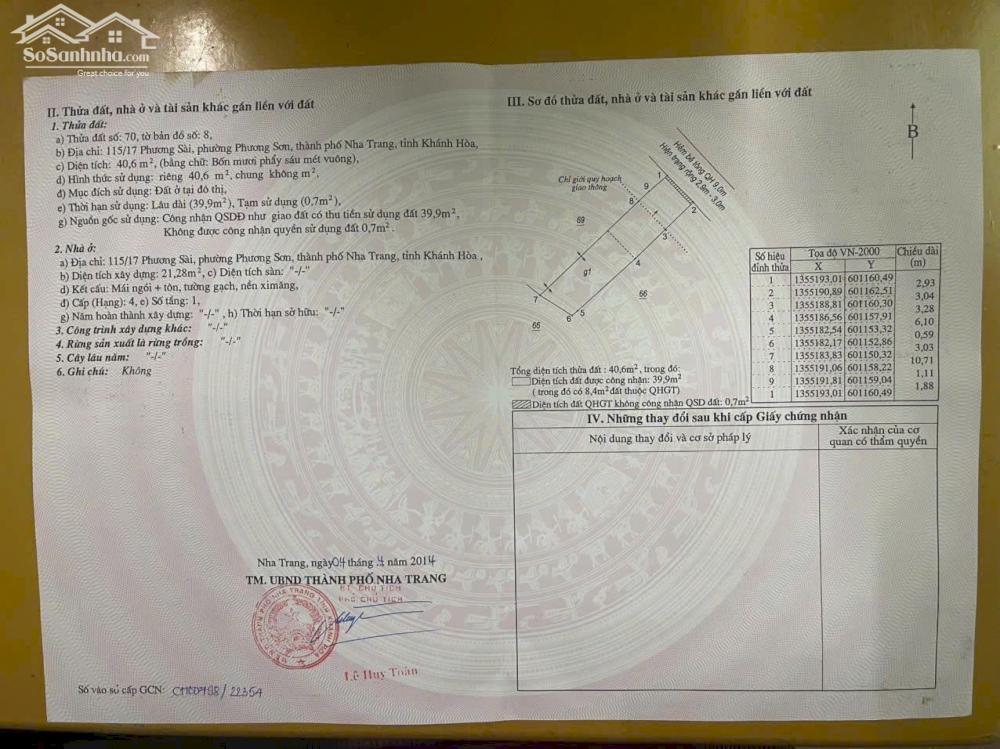 SoSanhnha.com
Great choice for you
II. Thửa đất, nhà ở và tài sản khác gắn liền với đất
1. Thửa đất:
a) Thửa đất số: 70, tờ bản đồ số: 8,
b) Địa chỉ: 115/17 Phương Sài, phường Phương Sơn, thành phố Nha Trang, tỉnh Khánh Hòa,
c) Diện tích: 40,6 m², (bằng chữ: Bốn mươi phẩy sáu mét vuông),
d) Hình thức sử dụng: riêng 40,6 m², chung không m²,
đ) Mục đích sử dụng: Đất ở tại đô thị,
e) Thời hạn sử dụng: Lâu dài (39,9m²), Tạm sử dụng (0,7m²),
g) Nguồn gốc sử dụng: Công nhận QSDĐ như giao đất có thu tiền sử dụng đất 39,9m²,
Không được công nhận quyền sử dụng đất 0,7m².
2. Nhà ở:
a) Địa chỉ: 115/17 Phương Sài, phường Phương Sơn, thành phố Nha Trang, tỉnh Khánh Hòa ,
b) Diện tích xây dựng: 21,28m², c) Diện tích sàn: "-/-"
d) Kết cấu: Mái ngói + tôn, tường gạch, nền ximăng,
đ) Cấp (Hạng): 4, e) Số tầng: 1,
g) Năm hoàn thành xây dựng: "-/-" , h) Thời hạn sở hữu: "-/-"
3. Công trình xây dựng khác: "-/-"
4. Rừng sản xuất là rừng trồng: "-/-"
5. Cây lâu năm: "-/-"
6. Ghi chú: Không
Nha Trang, ngày 04 tháng 4 năm 2014
TM. UBND THÀNH PHỐ NHA TRANG
KT. CHỦ TỊCH
PHÓ CHỦ TỊCH
Lê Huy Toàn
Số vào sổ cấp GCN: CH00798/22354
III. Sơ đồ thửa đất, nhà ở và tài sản khác gắn liền với đất
B
Hẻm bê tông QH 9,0m
Hiện trạng rộng 2,9m - 3,0m
Chỉ giới quy hoạch
giao thông
1
9
8
2
69
3
4
g1
66
7
6
5
65
Số hiệu đỉnh thửa Tọa độ VN-2000 Chiều dài (m)
X Y
1 1355193,01 601160,49
2,93
2 1355190,89 601162,51
3,04
3 1355188,81 601160,30
3,28
4 1355186,56 601157,91
6,10
5 1355182,54 601153,32
0,59
6 1355182,17 601152,86
3,03
7 1355183,83 601150,32
10,71
8 1355191,06 601158,22
1,11
9 1355191,81 601159,04
1,88
1 1355193,01 601160,49
Tổng diện tích thửa đất : 40,6m², trong đó:
Diện tích đất được công nhận: 39,9m²
( trong đó có 8,4m² đất thuộc QHGT)
Diện tích đất QHGT không công nhận QSD đất: 0,7m²
IV. Những thay đổi sau khi cấp Giấy chứng nhận
Nội dung thay đổi và cơ sở pháp lý
Xác nhận của cơ
quan có thẩm quyền